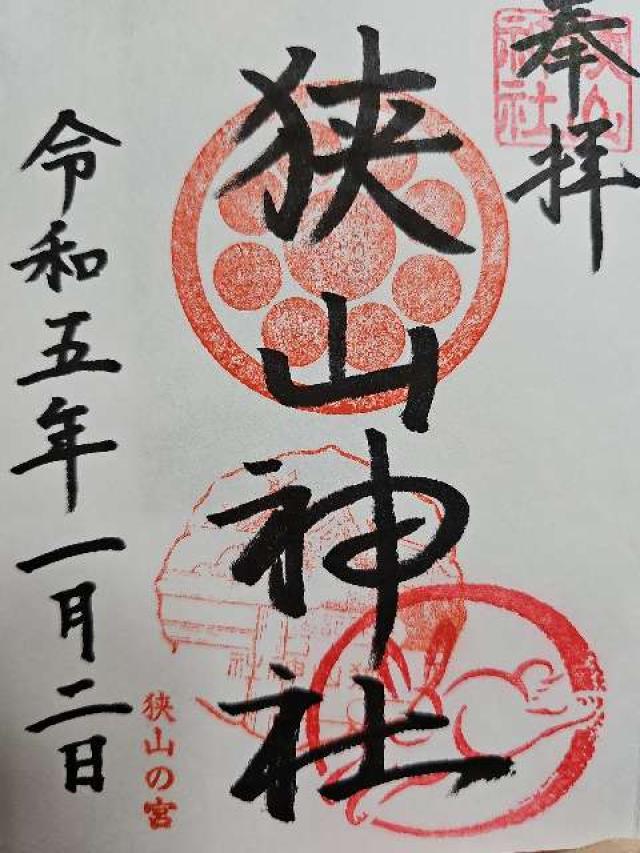 奉拝
狭山神社
狭山の宮
令和五年一月二日